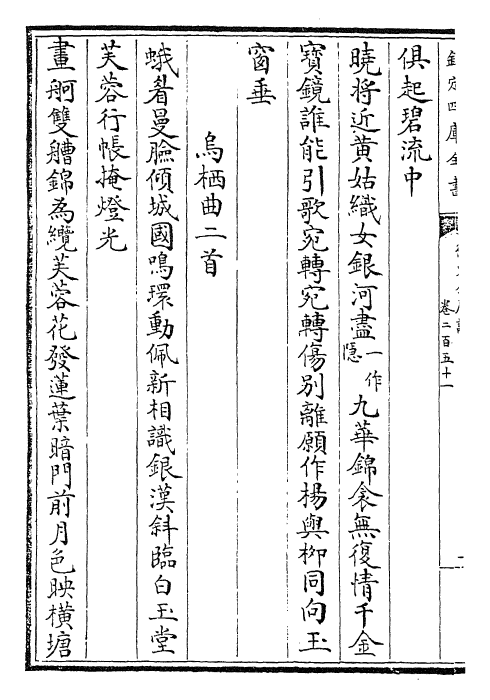 欽定四庫全書
卷二百五十一
俱起碧流中
曉將近黄姑織女銀河盡一作隱九華錦衾無復情千金
寳鏡誰能引歌宛轉宛轉傷别離願作楊與栁同向玉
窗垂
烏栖曲二首
蛾眉曼臉傾城國鳴環動佩新相識銀漢斜臨白玉堂
芙蓉行帳掩燈光
畫舸雙艚錦為纜芙蓉花發蓮葉暗門前月色映橫塘